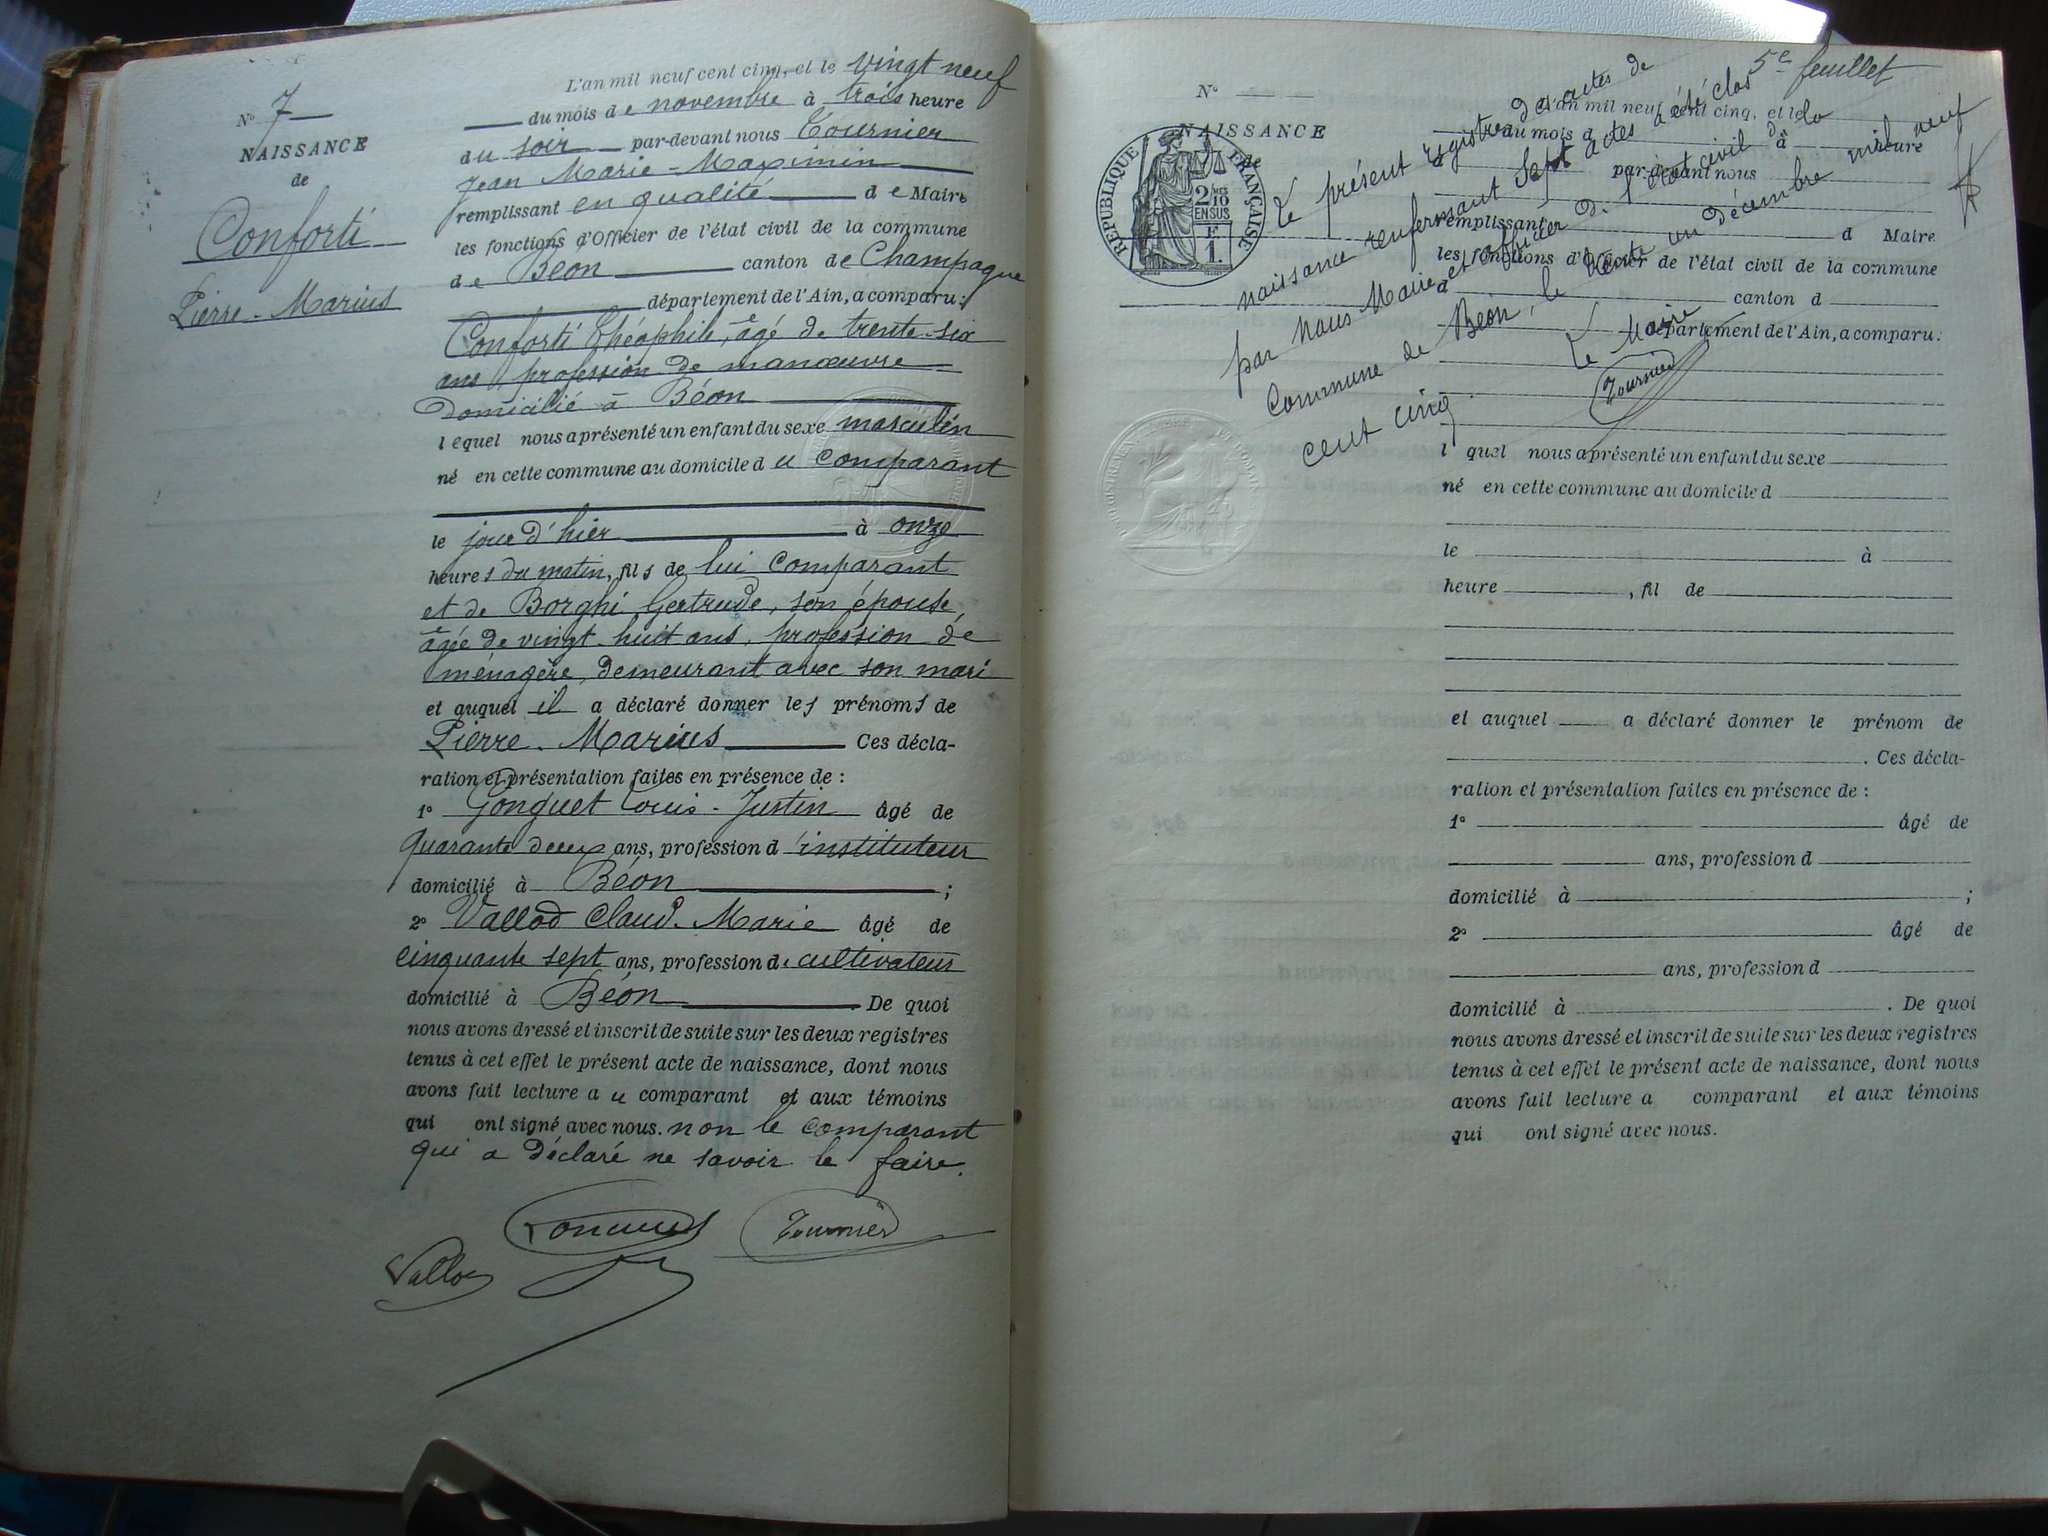 N° 7
NAISSANCE
de
Conforti
Pierre-Marius
L'an mil neuf cent cinq, et le vingt neuf
du mois de novembre à trois heure
du soir par-devant nous Tournier
Jean Marie-Maximin
remplissant en qualité de Maire
les fonctions d'Officier de l'état civil de la commune
de Béon canton de Champagne
département de l'Ain, a comparu:
Conforti Théophile, âgé de trente-six
ans, profession de manœuvre
domicilié à Béon
lequel nous a présenté un enfant du sexe masculin
né en cette commune au domicile du comparant
le jour d'hier à onze
heures du matin, fils de lui comparant
et de Borghi Gertrude, son épouse,
âgée de vingt-huit ans, profession de
ménagère, demeurant avec son mari
et auquel il a déclaré donner les prénoms de
Pierre-Marius Ces décla-
ration et présentation faites en présence de :
1° Gonguet Louis-Justin âgé de
quarante deux ans, profession d'instituteur
domicilié à Béon ;
2° Vallod Claud. Marie âgé de
cinquante sept ans, profession de cultivateur
domicilié à Béon. De quoi
nous avons dressé et inscrit de suite sur les deux registres
tenus à cet effet le présent acte de naissance, dont nous
avons fait lecture au comparant et aux témoins
qui ont signé avec nous. non le comparant
qui a déclaré ne savoir le faire.
Tournier
5e feuillet
Le présent registre des actes de
naissance renfermant sept actes a été clos
par nous Maire et officier de l'état civil de la
Commune de Béon, le trente un décembre mil neuf
cent cinq.
Le Maire
Tournier
N°
NAISSANCE
de
RÉPUBLIQUE FRANÇAISE
2/10
EN SUS
1.
L'an mil neuf cent cinq, et le
du mois d à heure
par-devant nous
remplissant d Maire
les fonctions d'Officier de l'état civil de la commune
d canton d
département de l'Ain, a comparu:
l quel nous a présenté un enfant du sexe
né en cette commune au domicile d
le à
heure , fil de
et auquel a déclaré donner le prénom de
. Ces décla-
ration et présentation faites en présence de :
1° âgé de
ans, profession d
domicilié à ;
2° âgé de
ans, profession d
domicilié à . De quoi
nous avons dressé et inscrit de suite sur les deux registres
tenus à cet effet le présent acte de naissance, dont nous
avons fait lecture a comparant et aux témoins
qui ont signé avec nous.